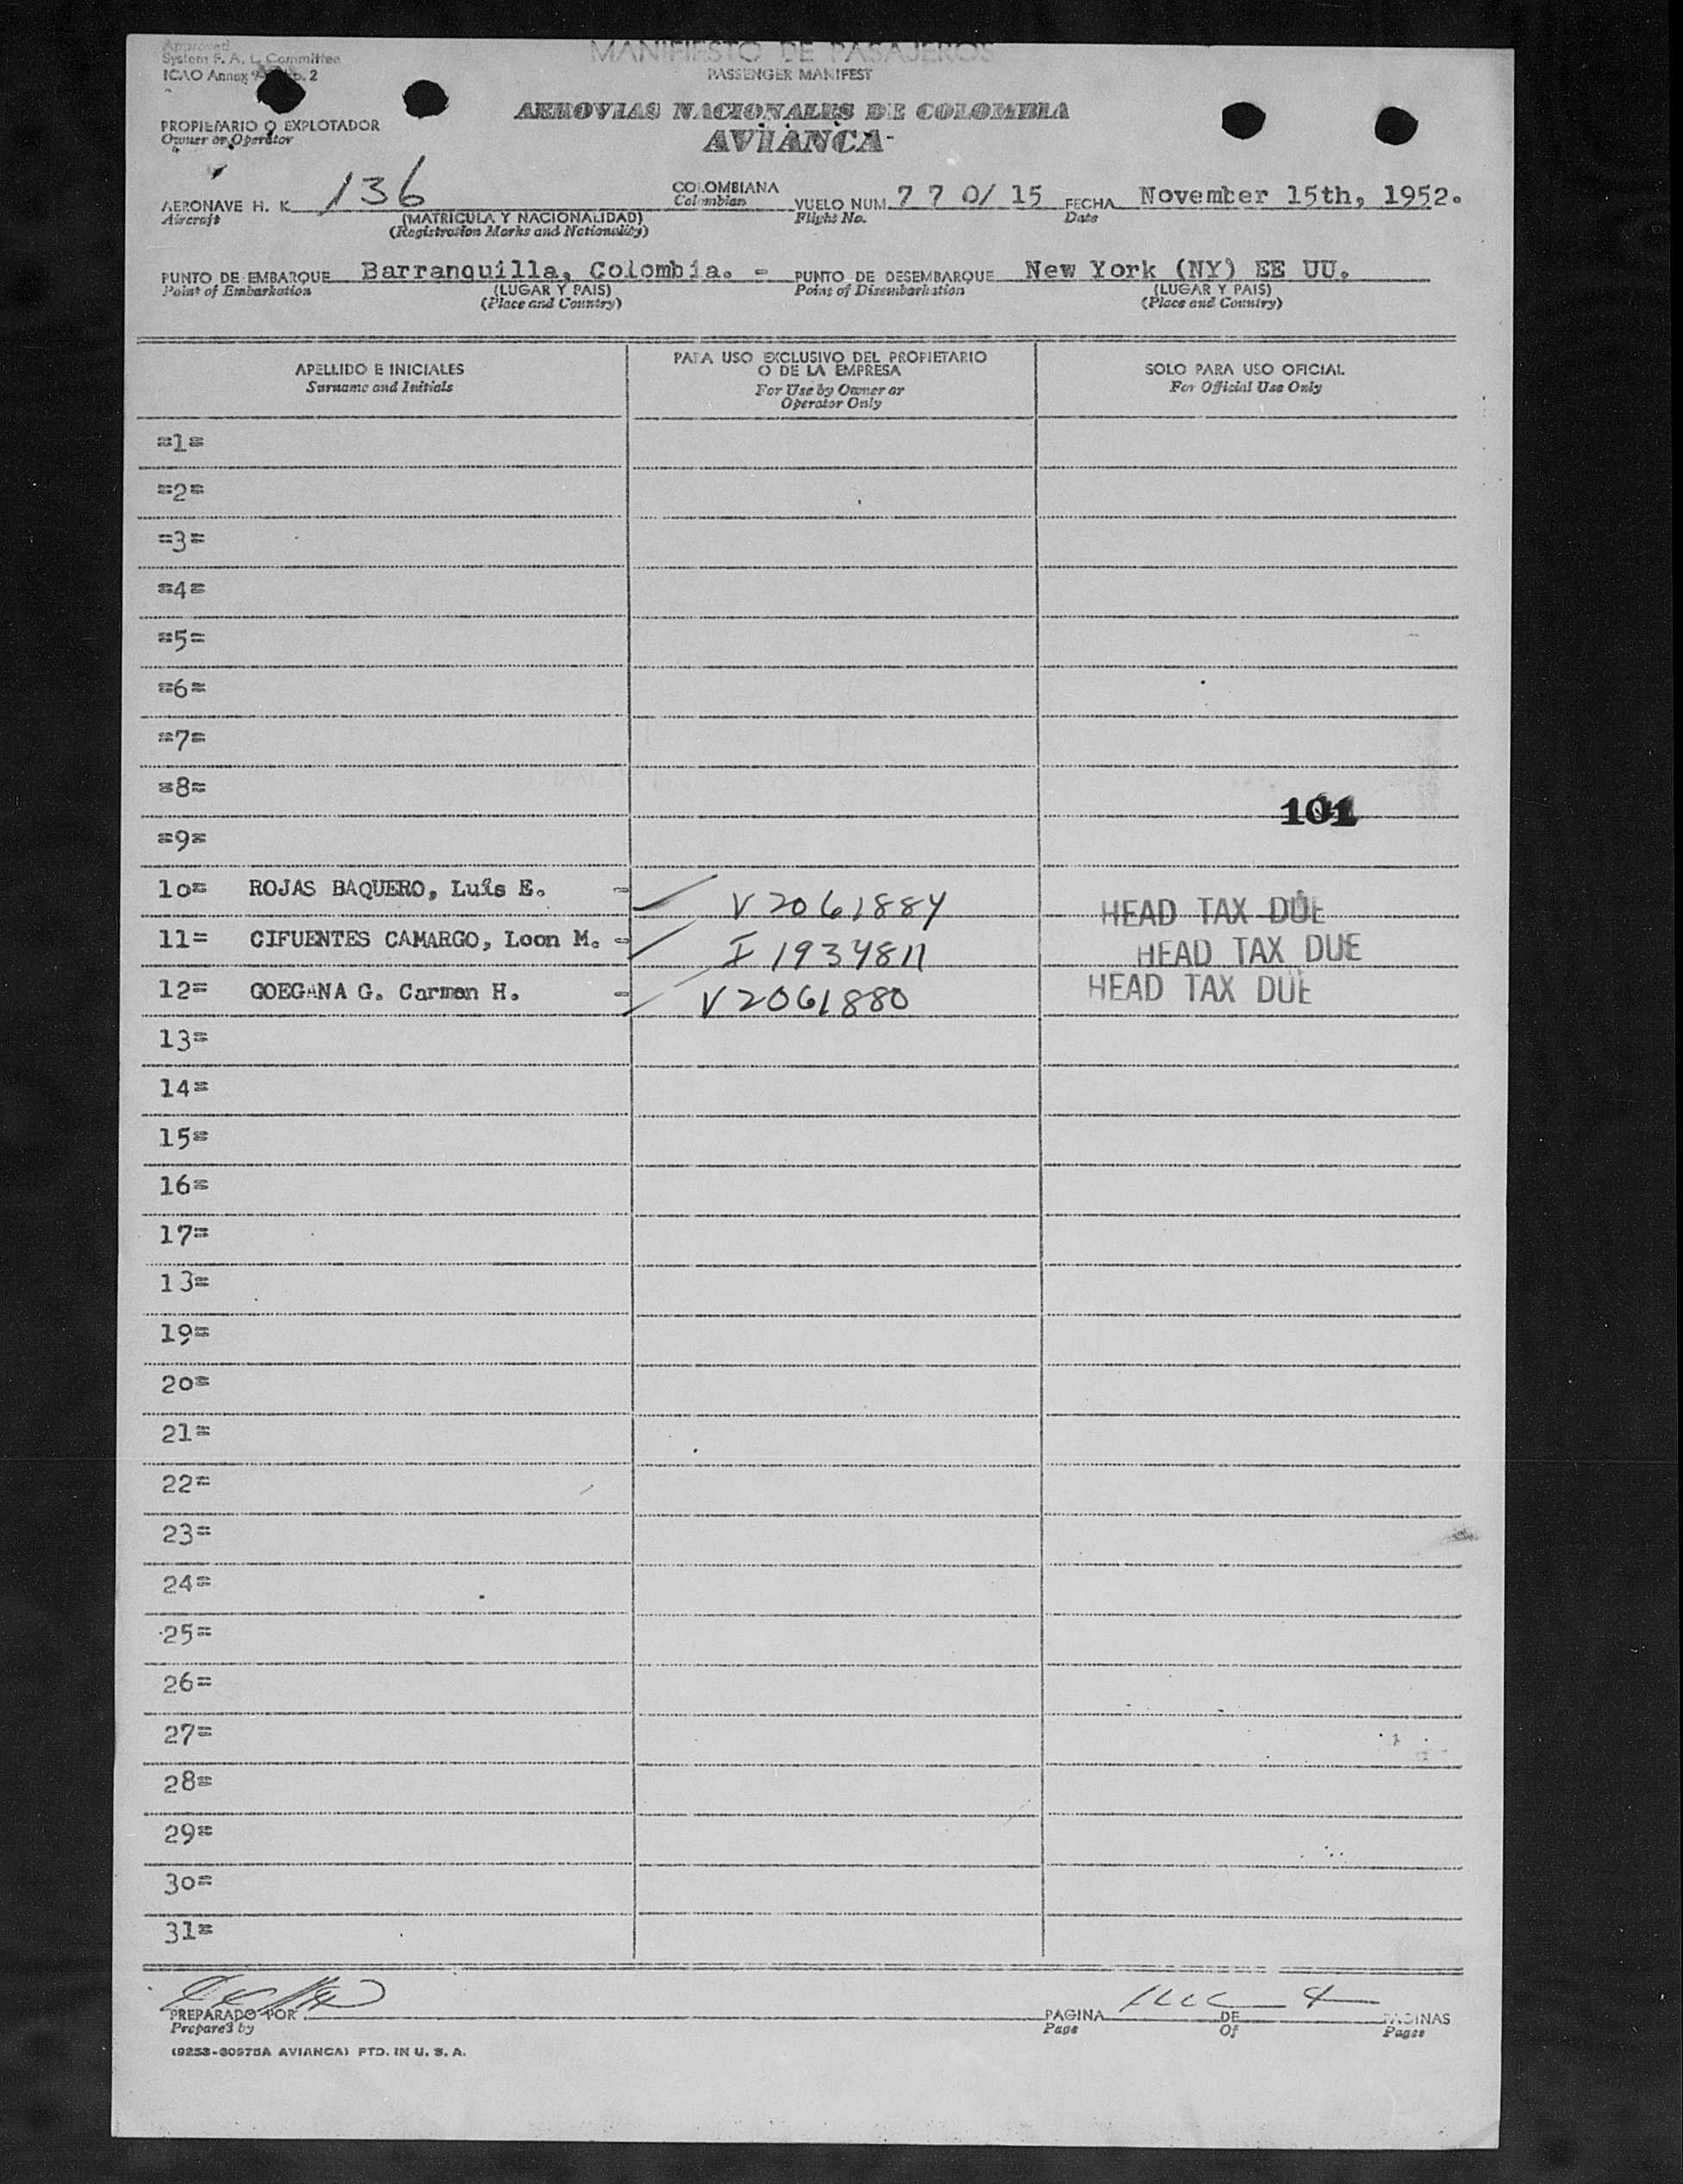 Approved
System F. A. L. Committee
ICAO Annex 9 2
MANIFIESTO DE PASAJEROS
PASSENGER MANIFEST
AEROVIAS NACIONALES DE COLOMBIA
AVIANCA
PROPIETARIO O EXPLOTADOR
Owner or Operator
AERONAVE H. K. 136 COLOMBIANA VUELO NUM. 7 7 0/ 15 FECHA November 15th, 1952.
Aircraft (MATRICULA Y NACIONALIDAD) Colombian Flight No. Date
(Registration Marks and Nationality)
PUNTO DE EMBARQUE Barranquilla, Colombia. - PUNTO DE DESEMBARQUE New York (NY) EE UU.
Point of Embarkation (LUGAR Y PAIS) Point of Disembarkation (LUGAR Y PAIS)
(Place and Country) (Place and Country)
APELLIDO E INICIALES
Surname and Initials
PARA USO EXCLUSIVO DEL PROPIETARIO
O DE LA EMPRESA
For Use by Owner or
Operator Only
SOLO PARA USO OFICIAL
For Official Use Only
=1=
=2=
=3=
=4=
=5=
=6=
=7=
=8=
101
=9=
10= ROJAS BAQUERO, Luis E. - V 2061884 HEAD TAX DUE
11= CIFUENTES CAMARGO, Leon M. - I 1934811 HEAD TAX DUE
12= GOEGANA G. Carmen H. - V 2061880 HEAD TAX DUE
13=
14=
15=
16=
17=
13=
19=
20=
21=
22=
23=
24=
25=
26=
27=
28=
29=
30=
31=
PREPARADO POR PAGINA DE 4 PAGINAS
Prepared by Page Of Pages
(9253-60975A AVIANCA) PTD. IN U. S. A.